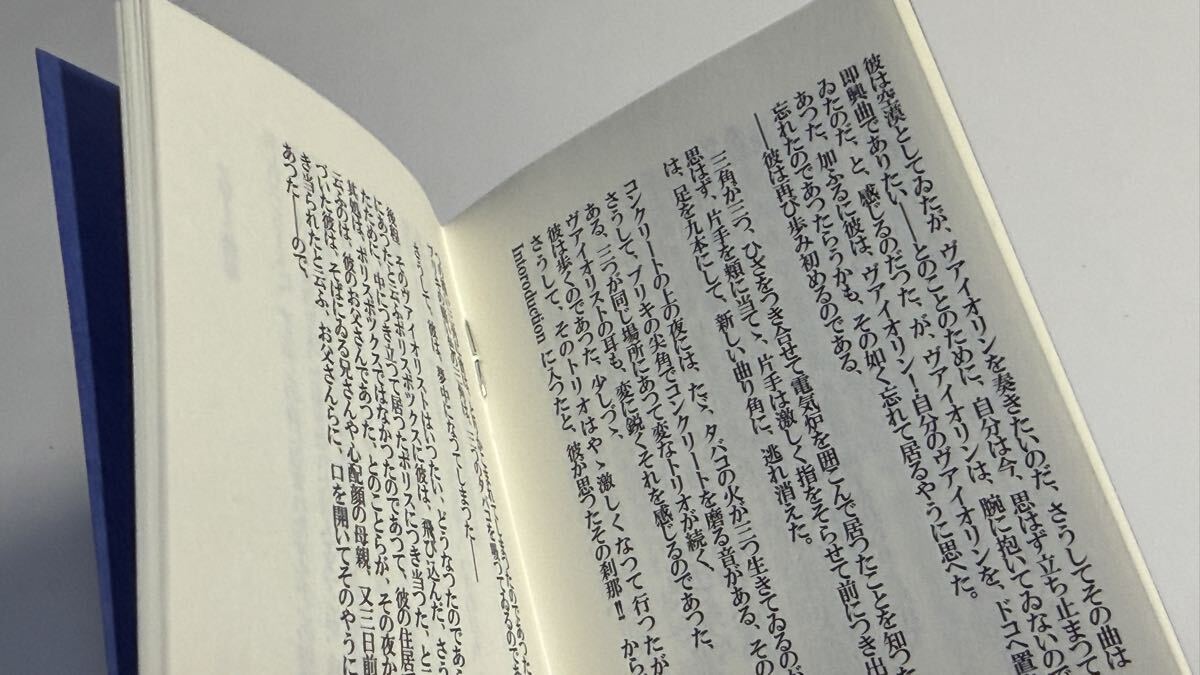 彼は空漠としてゐたが、ヴァイオリンを奏きたいのだ、さうしてその曲は
即興曲でありたい、――とのことのために、自分は今、思はず立ち止まつて
ゐたのだ、と、感じるのだつた、が、ヴァイオリンは、腕に抱いてゐないので
あつた、加ふるに彼は、ヴァイオリン！自分のヴァイオリンを、ドコへ置
忘れたのであつたらうかも、その如く忘れて居るやうに思へた。
――彼は再び歩み初めるのである、
三角が三つ、ひざをつき合せて電気炉を囲こんで居つたことを知つた
思はず、片手を頬に当て、片手は激しく指をそらせて前につき出
は、足を九本にして、新しい曲り角に、逃れ消えた。
コンクリートの上の夜には、たゞ、タバコの火が三つ生きてゐるのが
さうして、ブリキの尖角でコンクリートを磨る音がある、その
ある、三つが同じ場所にあつて変なトリオが続く、
ヴァイオリストの耳も、変に鋭くそれを感じるのであつた、
彼は歩くのであつた、少しづゝ、
さうして、そのトリオはやゝ激しくなつて行つたが
Intoroduction に入つたと、彼が思つたその刹那!! から
さうして、彼は、夢中になつてしまつた――
そのヴァイオリストはいつたい、どうなつたのであ
彼が飛び込んだ、さう
にあつたと云ふポリスボックスに彼は、
たために、中につき立つて居つたポリスにつき当つた、と
其処は、ポリスボックスではなかつたのであつて、彼の住居で
云ふのは、彼のお父さんであつた、とのことらが、その夜か
づいた彼は、そばにゐる兄さんや、心配顔の母親、又三日前
き当られたと云ふ、お父さんらに、口を開いてそのやうに
あつた――ので、